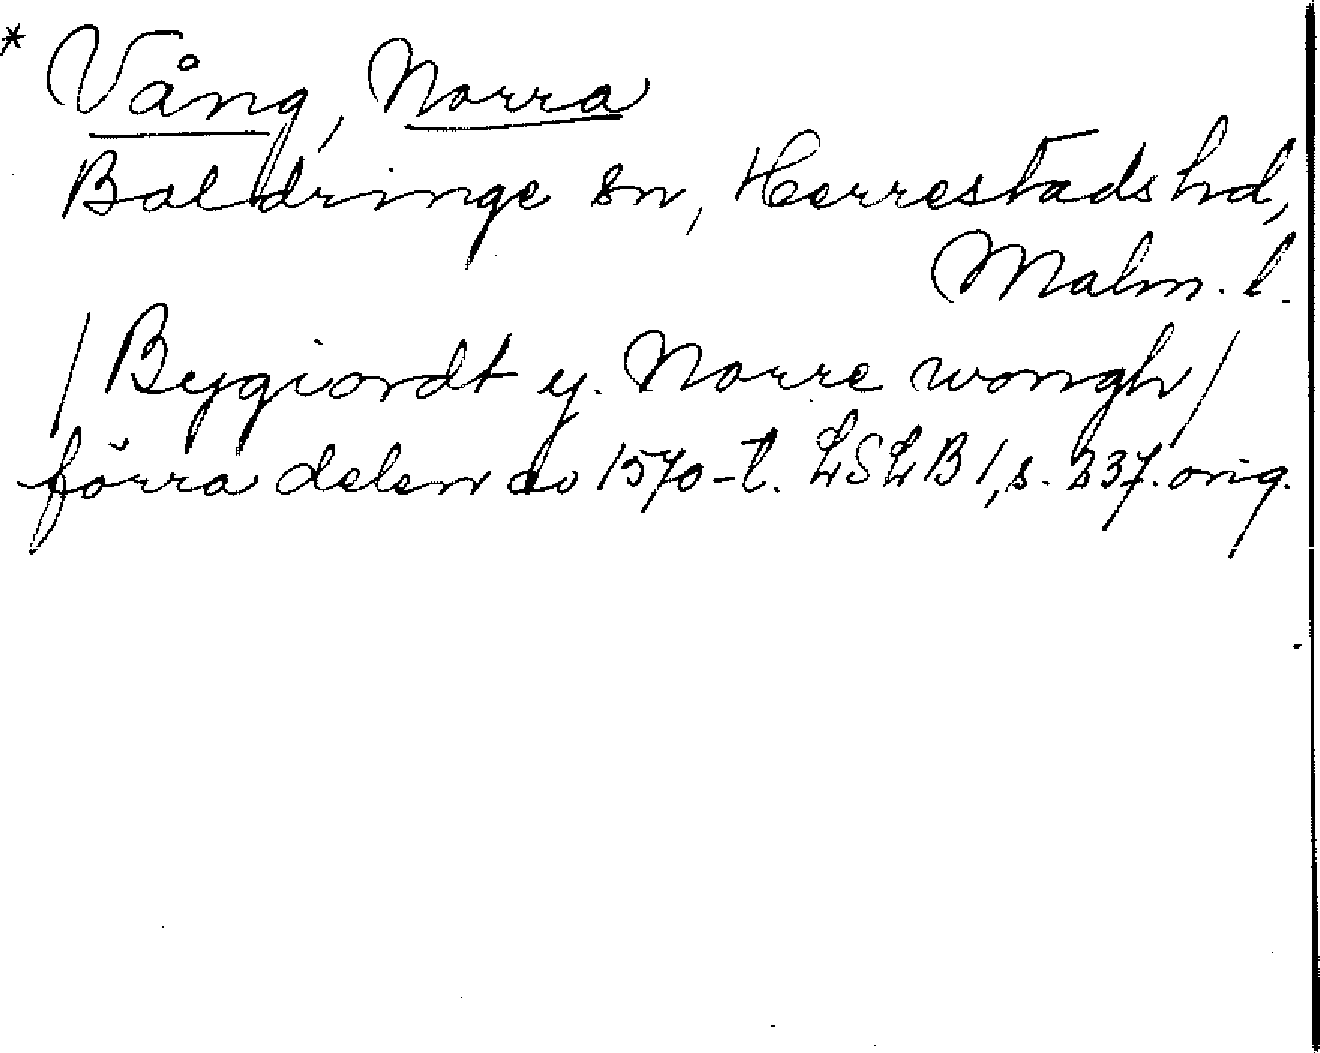 * Vång, Norra
Baldringe sn, Herrestads hd,
Malm. l.
/ Bygiordt y. Norre wongh /
förra delen av 1570-t. LSLB 1, s. 237. orig.